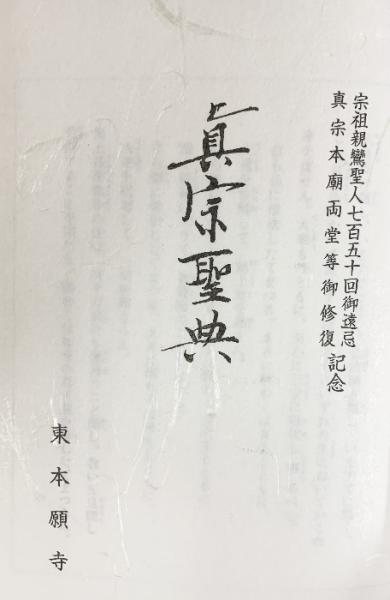 宗祖親鸞聖人七百五十回御遠忌
真宗本廟両堂等御修復記念
真宗聖典
東本願寺